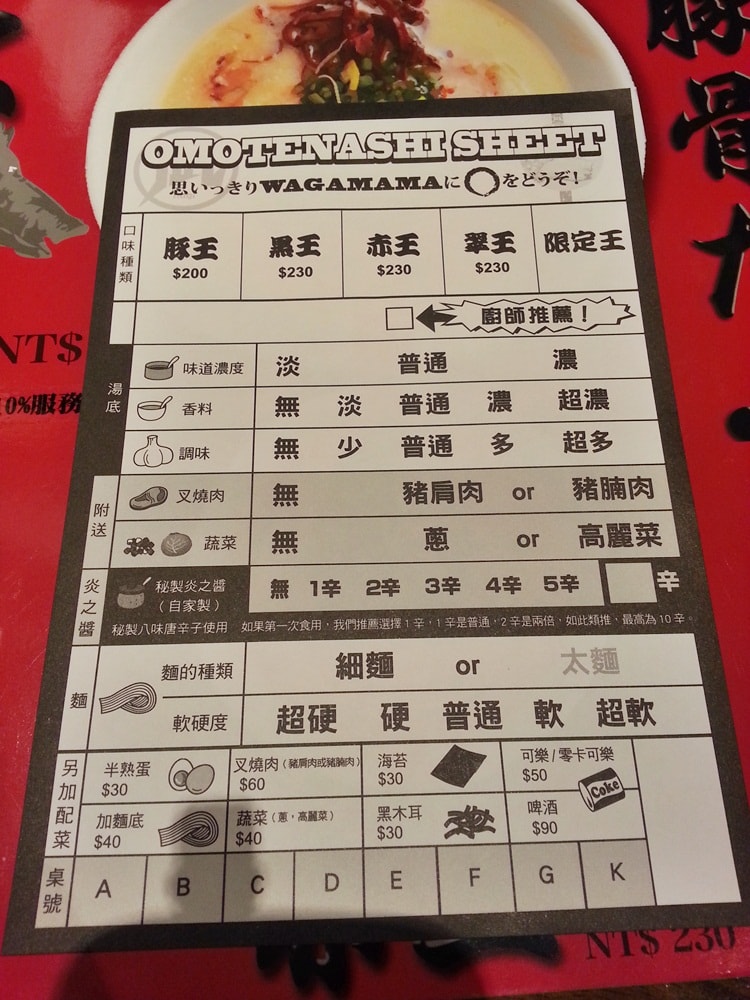 豚骨
OMOTENASHI SHEET
思いっきりWAGAMAMAに○をどうぞ!
口味種類
豚王 $200
黒王 $230
赤王 $230
翠王 $230
限定王
廚師推薦！
湯底
味道濃度 淡 普通 濃
香料 無 淡 普通 濃 超濃
調味 無 少 普通 多 超多
附送
叉燒肉 無 豬肩肉 or 豬腩肉
蔬菜 無 蔥 or 高麗菜
炎之醬
秘製炎之醬
（自家製）
無 1辛 2辛 3辛 4辛 5辛 辛
秘製八味唐辛子使用 如果第一次食用，我們推薦選擇1辛，1辛是普通，2辛是兩倍，如此類推，最高為10辛。
麵
麵的種類 細麵 or 太麵
軟硬度 超硬 硬 普通 軟 超軟
另加配菜
半熟蛋 $30
叉燒肉（豬肩肉或豬腩肉） $60
海苔 $30
可樂/零卡可樂 $50
Coke
加麵底 $40
蔬菜（蔥，高麗菜） $40
黑木耳 $30
啤酒 $90
桌號 A B C D E F G K
NT$
10%服務
NT$ 230